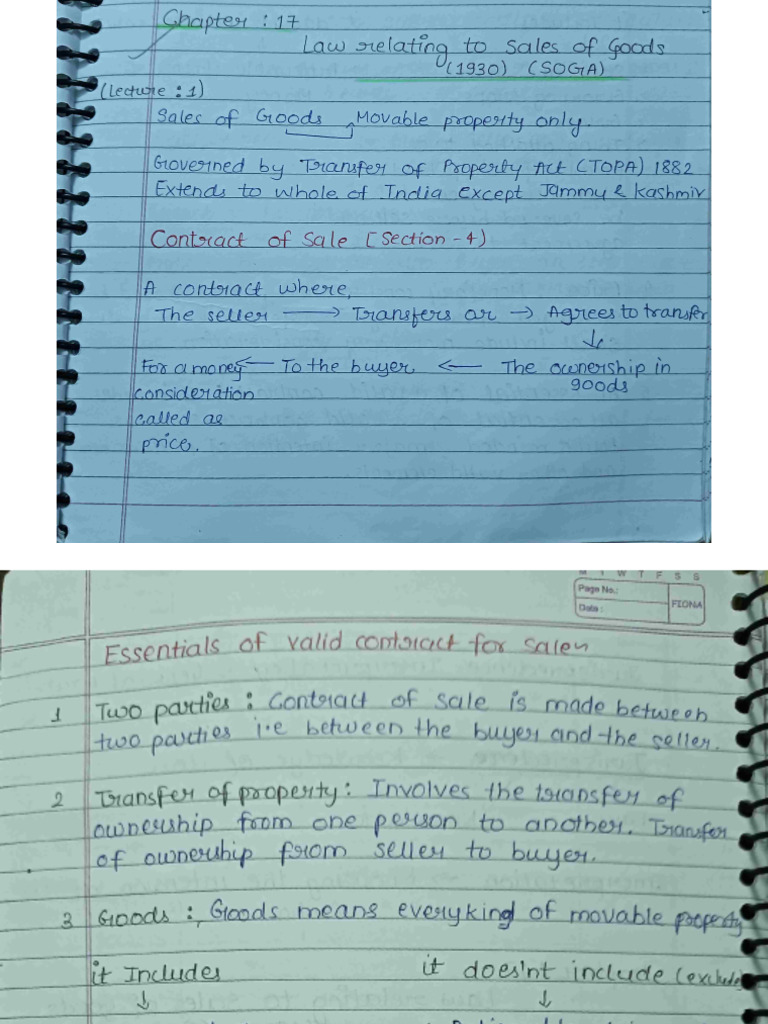 Chapter : 17
Law relating to Sales of Goods
(1930) (SOGA)
(Lecture : 1)
Sales of Goods Movable property only.
Governed by Transfer of Property Act (TOPA) 1882
Extends to whole of India except Jammy & Kashmir
Contract of Sale [Section - 4)
A contract where,
The seller → Transfers or → Agrees to transfer
↓
For a money ← To the buyer ← The ownership in
goods
consideration
called as
price.
M T W T F S S
Page No.:
Date :
FIONA
Essentials of valid contract for sale
1 Two parties : Contract of sale is made between
two parties i.e between the buyer and the seller.
2 Transfer of property : Involves the transfer of
ownership from one person to another. Transfer
of ownership from seller to buyer.
3 Goods : Goods means everyking of movable property
it Includes it does'nt include (exclude)
↓ ↓